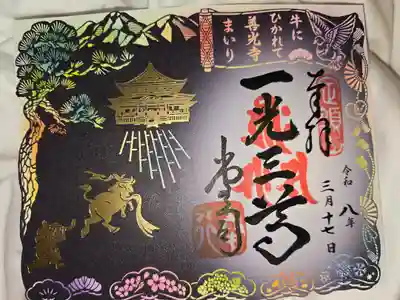 牛に
ひかれて
善光寺
まいり
奉拝
令和八年
三月十七日
一光三尊